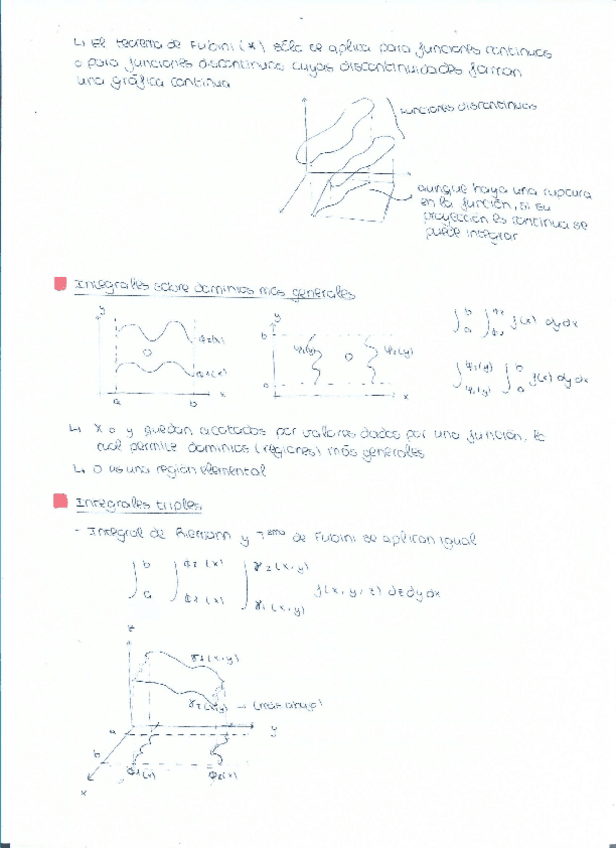 ↳ El teorema de Fubini (*) sólo se aplica para funciones continuas
o para funciones discontinuas cuyas discontinuidades forman
una gráfica continua
funciones discontinuas
aunque haya una ruptura
en la función, si su
proyección es continua se
puede integrar
Integrales sobre dominios más generales
y
D
a b x
y
b
a
D
x
f(x) dydx
f(x) dydx
↳ x o y quedan acotados por valores dados por una función, lo
cual permite dominios (regiones) más generales
↳ D es una región elemental
Integrales triples
- Integral de Riemann y Tema de Fubini se aplican igual
∫ b a ∫ ϕ2(x) ∫ γ2(x,y) γ1(x,y) f(x,y,z) dzdydx
z
(x,y)
γ2(x,y) → (más abajo)
a
y
b
x
ϕ1(x) ϕ2(x)